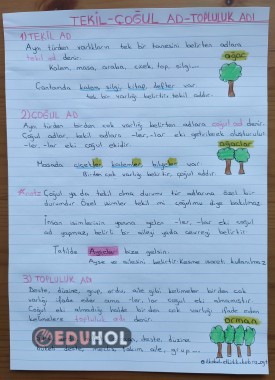 TEKİL-ÇOĞUL AD-TOPLULUK ADI
1) TEKİL AD
Aynı türden varlıkların tek bir tanesini belirten adlara
tekil ad denir.
ağaç
Kalem, masa, araba, çiçek, top, silgi...
Çantamda kalem, silgi, kitap, defter var.
tek bir varlığı belirtir, tekil addır.
2) ÇOĞUL AD
Aynı türden birden çok varlığı belirten adlara çoğul ad denir.
Çoğul adlar, tekil adlara -ler, -lar eki getirilerek oluşturulur.
-ler -lar eki çoğul ekidir.
ağaçlar
Masada çiçekler, kalemler, var.
Birden çok varlığı belirtir, çoğul addır.
Çoğul ya da tekil olma durumu tür adlarına özel bir
durumdur. Özel isimler tekil mi çoğul mu diye bakılmaz.
İnsan isimlerinin yanına gelen -ler, -lar eki çoğul
ad yapmaz, belirli bir aileyi ya da çevreyi belirtir.
Tatilde Ayşeler bize gelsin.
Ayşe ve ailesini belirtir. Kesme işareti kullanılmaz.
3) TOPLULUK AD
Deste, düzine, grup, ordu, aile gibi kelimeler birden çok
varlığı ifade eder ama -ler, -lar çoğul eki almamıştır.
Çoğul eki almadığı halde birden çok varlığı ifade eden
kelimelere topluluk adı denir.
orman
EDUHOL
deste, düzine